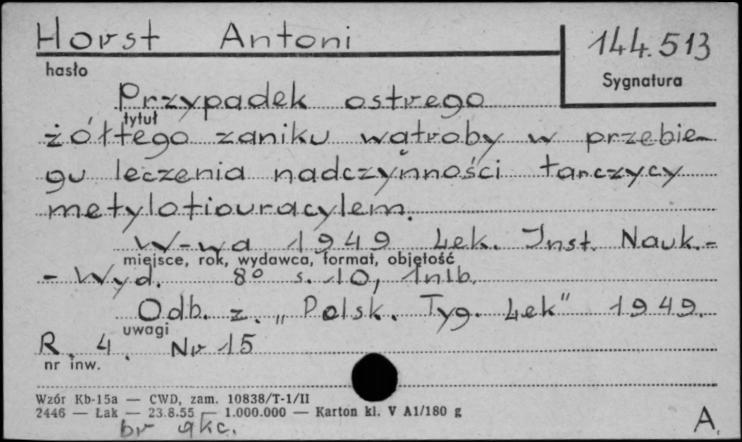 Horst Antoni
144.513
hasło
Sygnatura
Przypadek ostrego
tytuł
żółtego zaniku wątroby w przebie-
gu leczenia nadczynności tarczycy
metylotiouracylem.
W-wa 1949 Lek. Inst. Nauk.-
miejsce, rok, wydawca, format, objętość
- Wyd. 8° s. 10, 1nlb.
Odb. z. „Polsk. Tyg. Lek" 1949.
uwagi
R. 4. Nr 15
nr inw.
Wzór Kb-15a — CWD, zam. 10838/T-1/II
2446 — Łak — 23.8.55 — 1.000.000 — Karton kl. V A1/180 g
br
A.